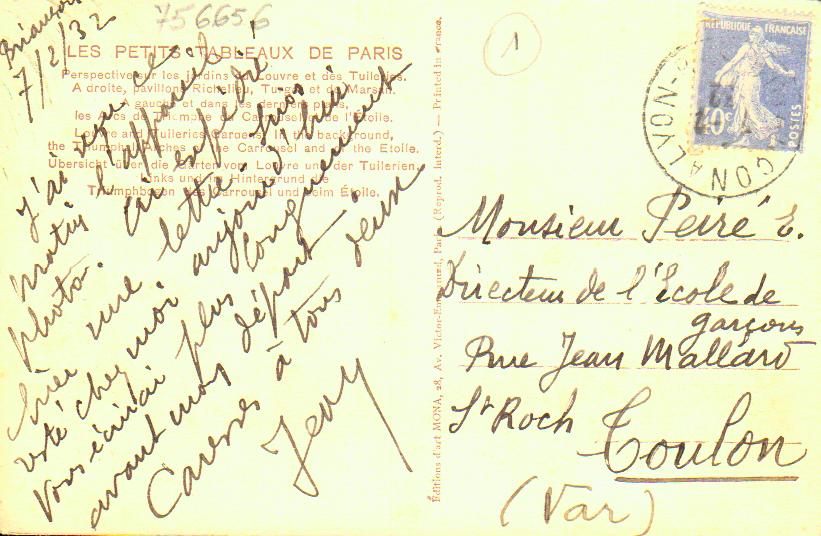 756656
Briançon
7/2/32
LES PETITS TABLEAUX DE PARIS
Perspective sur les jardins du Louvre et des Tuileries.
A droite, pavillons Richelieu, Turgot et de Marsan.
A gauche et dans les derniers plans,
les Arcs de Triomphe du Carrousel et de l'Étoile.
Louvre and Tuileries Gardens. In the background,
the Triumphal Arches of the Carrousel and of the Etoile.
Übersicht über die Gärten vom Louvre und der Tuilerien.
Links und im Hintergrund die
Triumphbogen des Carrousel und beim Étoile.
J'ai reçu ce
matin l'appareil
photo. Ai expédié
hier une lettre. Suis
resté chez moi aujourd'hui
Vous écrirai plus longuement
avant mon départ.
Caresses à tous deux
Jeny
Éditions d'art MONA, 28, Av. Victor-Emmanuel, Paris (Reprod. interd.) — Printed in France.
1
RÉPUBLIQUE FRANÇAISE
40c
POSTES
Monsieur Peiré E.
Directeur de l'École de
garçons
Rue Jean Mallard
St Roch
Toulon
(Var)